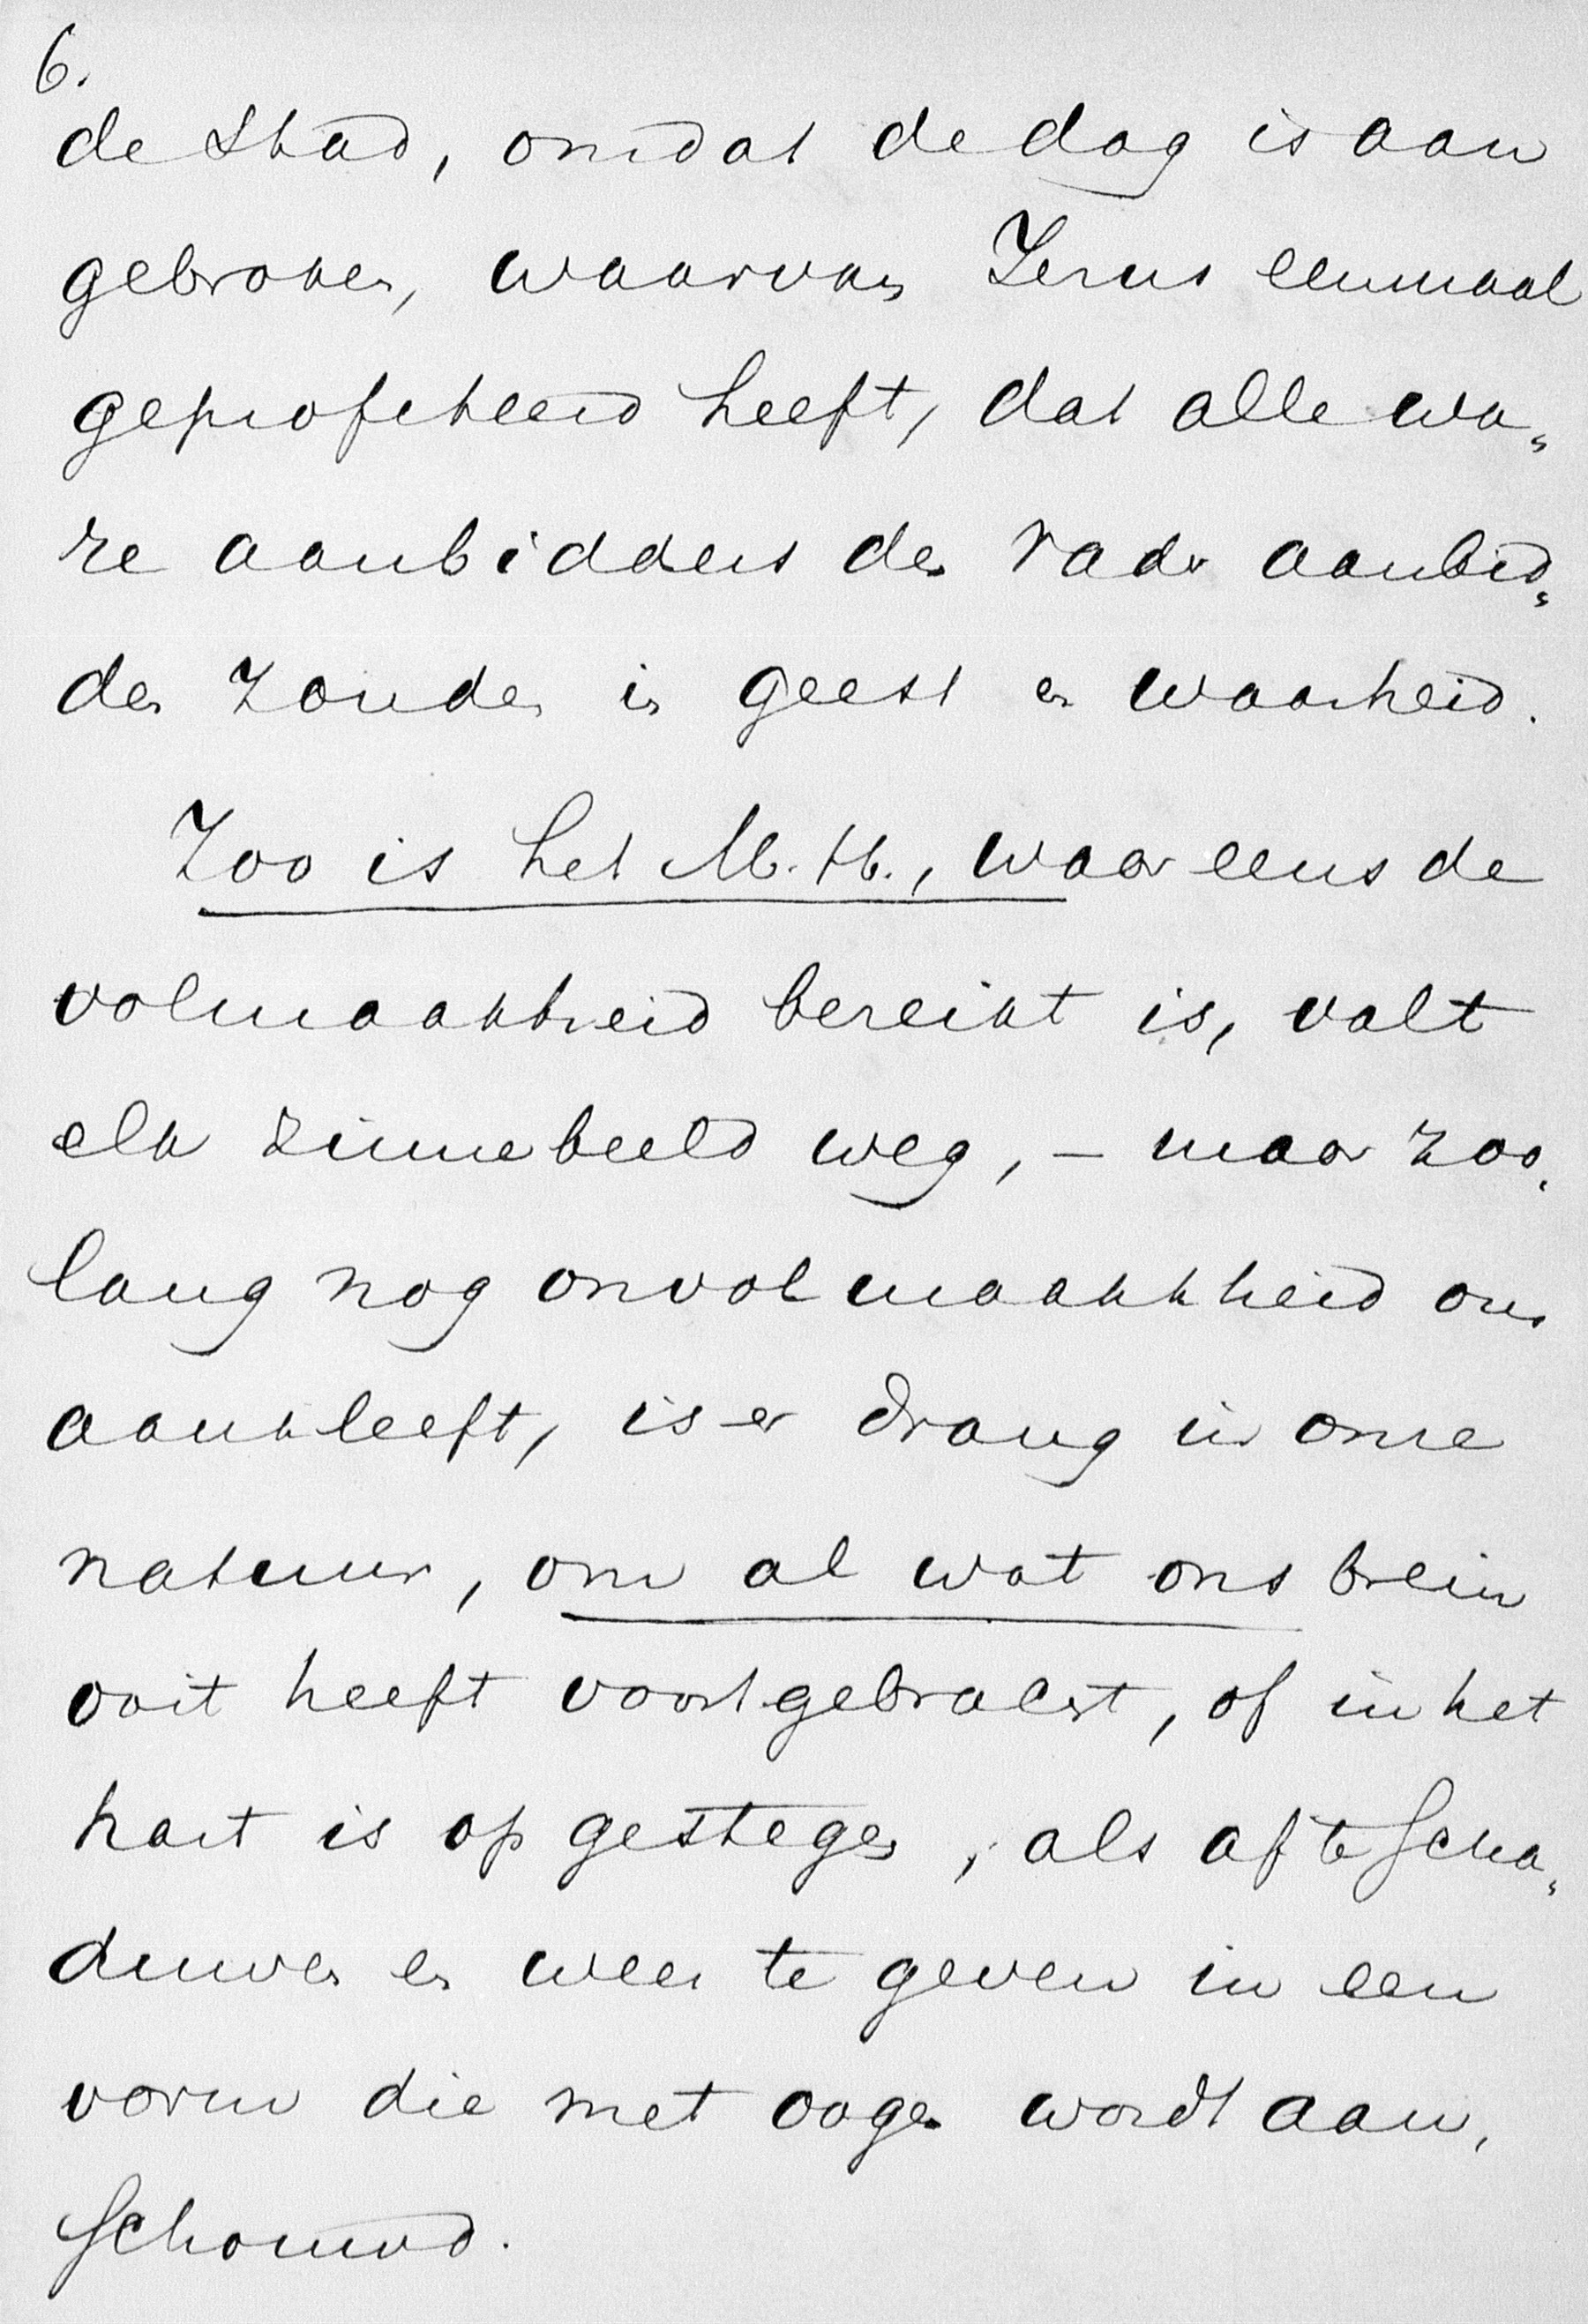 6.
de stad, omdat de dag is aan
gebroken, waarvan Jezus eenmaal
geprofeteerd heeft, dat alle wa„
re aanbidders den Vader aanbid„
den zouden in geest en waarheid.
Zoo is het M. H., waar eens de
volmaaktheid bereikt is, valt
elk zinnebeeld weg, – maar zoo„
lang nog onvolmaaktheid ons
aankleeft, is er drang in onze
natuur, om al wat ons brein
ooit heeft voortgebracht, of in het
hart is opgestegen, als af te scha„
duwen en weer te geven in een
vorm die met oogen wordt aan„
schouwd.